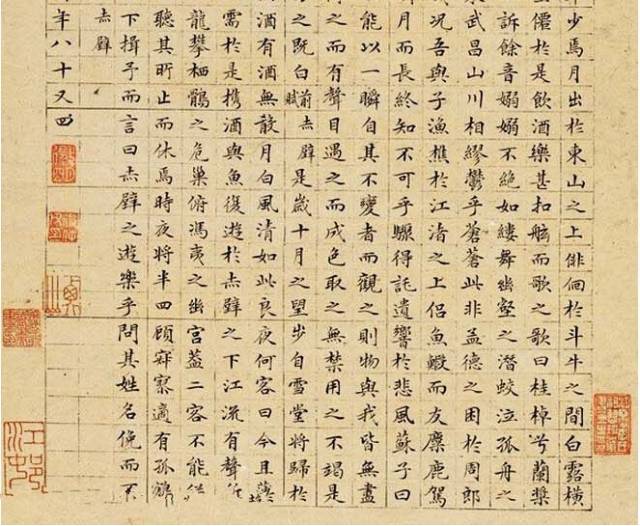 少焉月出於東山之上徘徊於斗牛之間白露橫
僊於是飲酒樂甚扣舷而歌之歌曰桂棹兮蘭槳
訴餘音嫋嫋不絕如縷舞幽壑之潛蛟泣孤舟之
武昌山川相繆鬱乎蒼蒼此非孟德之困於周郎
況吾與子漁樵於江渚之上侶魚蝦而友麋鹿駕
月而長終知不可乎驟得託遺響於悲風蘇子曰
能以一瞬自其不變者而觀之則物與我皆無盡
之而有聲目遇之而成色取之無禁用之不竭是
之既白前赤壁賦是歲十月之望步自雪堂將歸於
酒有酒無殽月白風清如此良夜何客曰今且薄
需於是攜酒與魚復遊於赤壁之下江流有聲
龍攀栖鶻之危巢俯馮夷之幽宮蓋二客不能從
聽其所止而休焉時夜將半四顧寂寥適有孤鶴
下揖予而言曰赤壁之遊樂乎問其姓名俛而不
赤壁
年八十又四
江邨